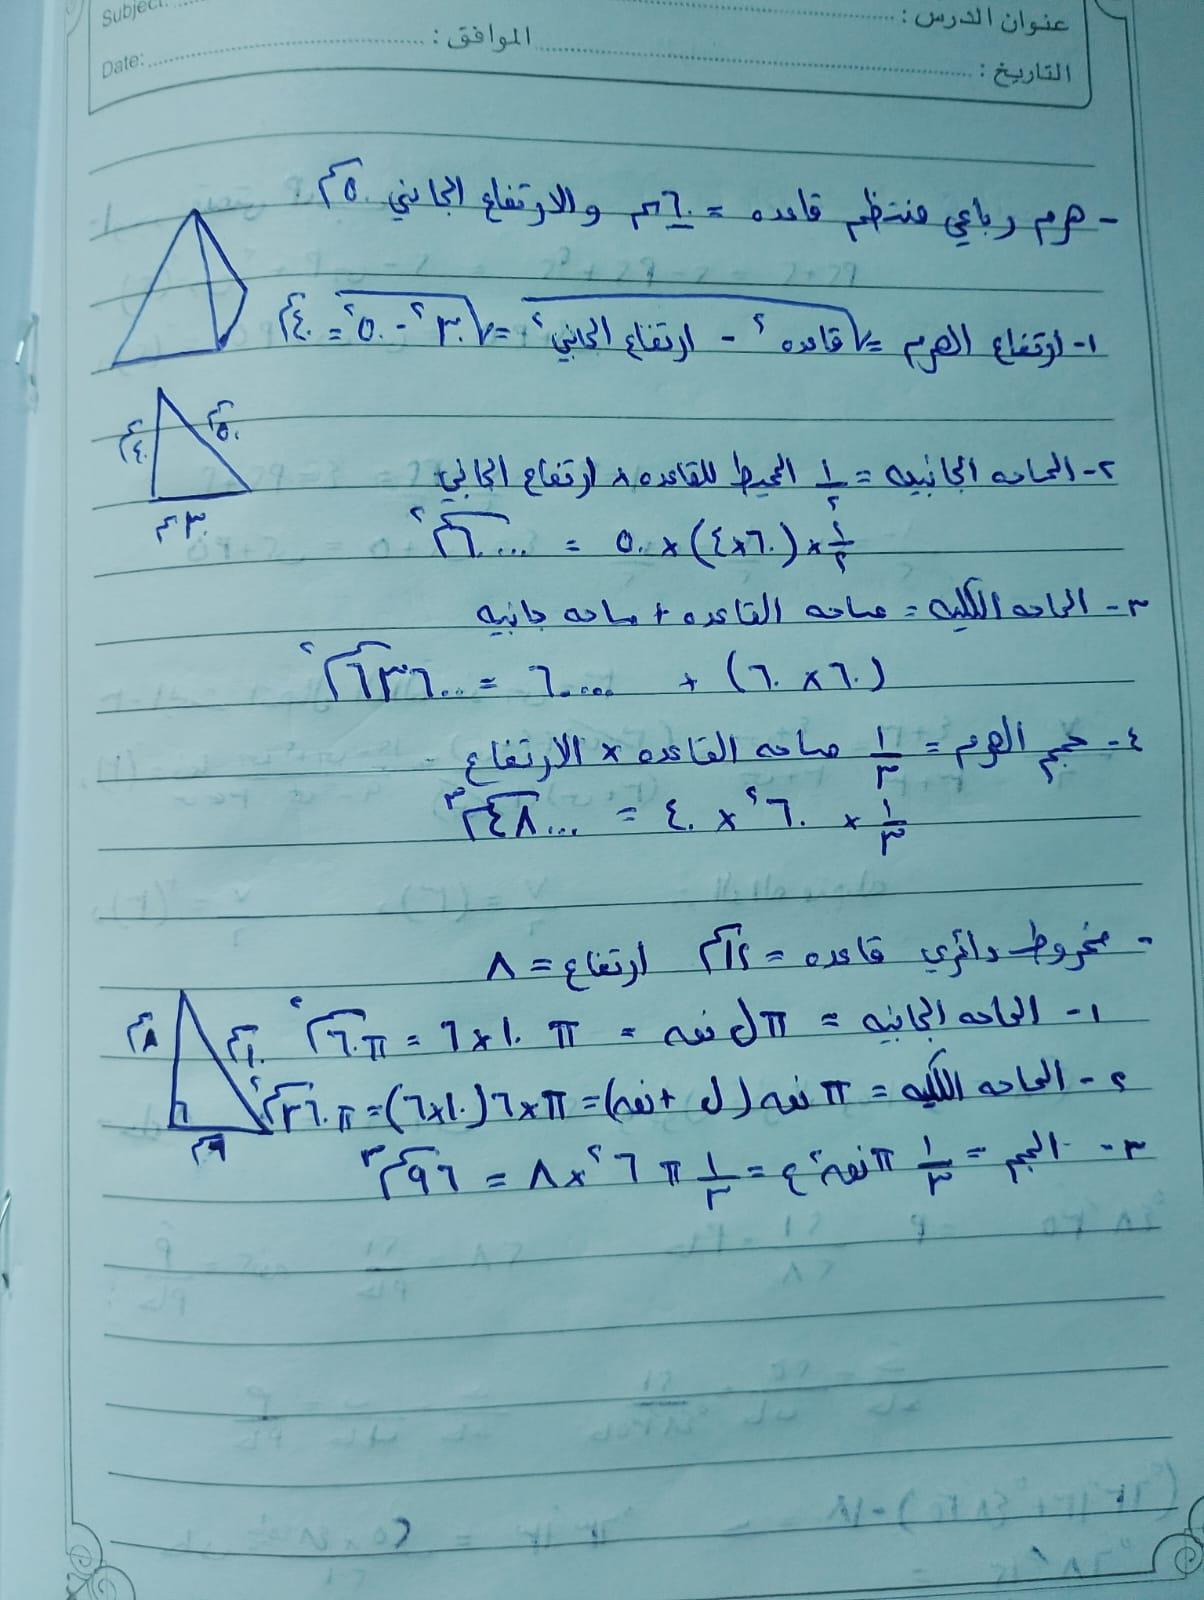 Subject:
عنوان الدرس :
الموافق :
Date:
التاريخ :
- هرم رباعي منتظم قاعده = ٦٠سم والارتفاع الجانبي ٥٠سم
١- ارتفاع الهرم = √قاعده² - ارتفاع الجانبي² = √٣٠² - ٥٠² = ٤٠سم
٤٠سم
٥٠سم
٣٠سم
٢- المساحه الجانبيه = ١/٢ المحيط للقاعده × ارتفاع الجانبي
١/٢ × (٦٠×٤) × ٥٠ = ٦٠٠٠سم²
٣- المساحه الكليه = مساحه القاعده + مساحه جانبيه
(٦٠×٦٠) + ٦٠٠٠ = ٦٣٦٠٠سم²
٤- حجم الهرم = ١/٣ مساحه القاعده × الارتفاع
١/٣ × ٦٠² × ٤٠ = ٤٨٠٠٠سم³
- مخروط دائري قاعده = ١٢سم ارتفاع = ٨
١- المساحه الجانبيه = π ل نق = π ١٠×٦ = π٦٠سم²
٨سم
١٠سم
٦سم
٢- المساحه الكليه = π نق (ل + نق) = π×٦(١٠×٦) = π٣٦٠سم²
٣- الحجم = ١/٣ π نق² ع = ١/٣ π ٦² × ٨ = ٩٦سم³